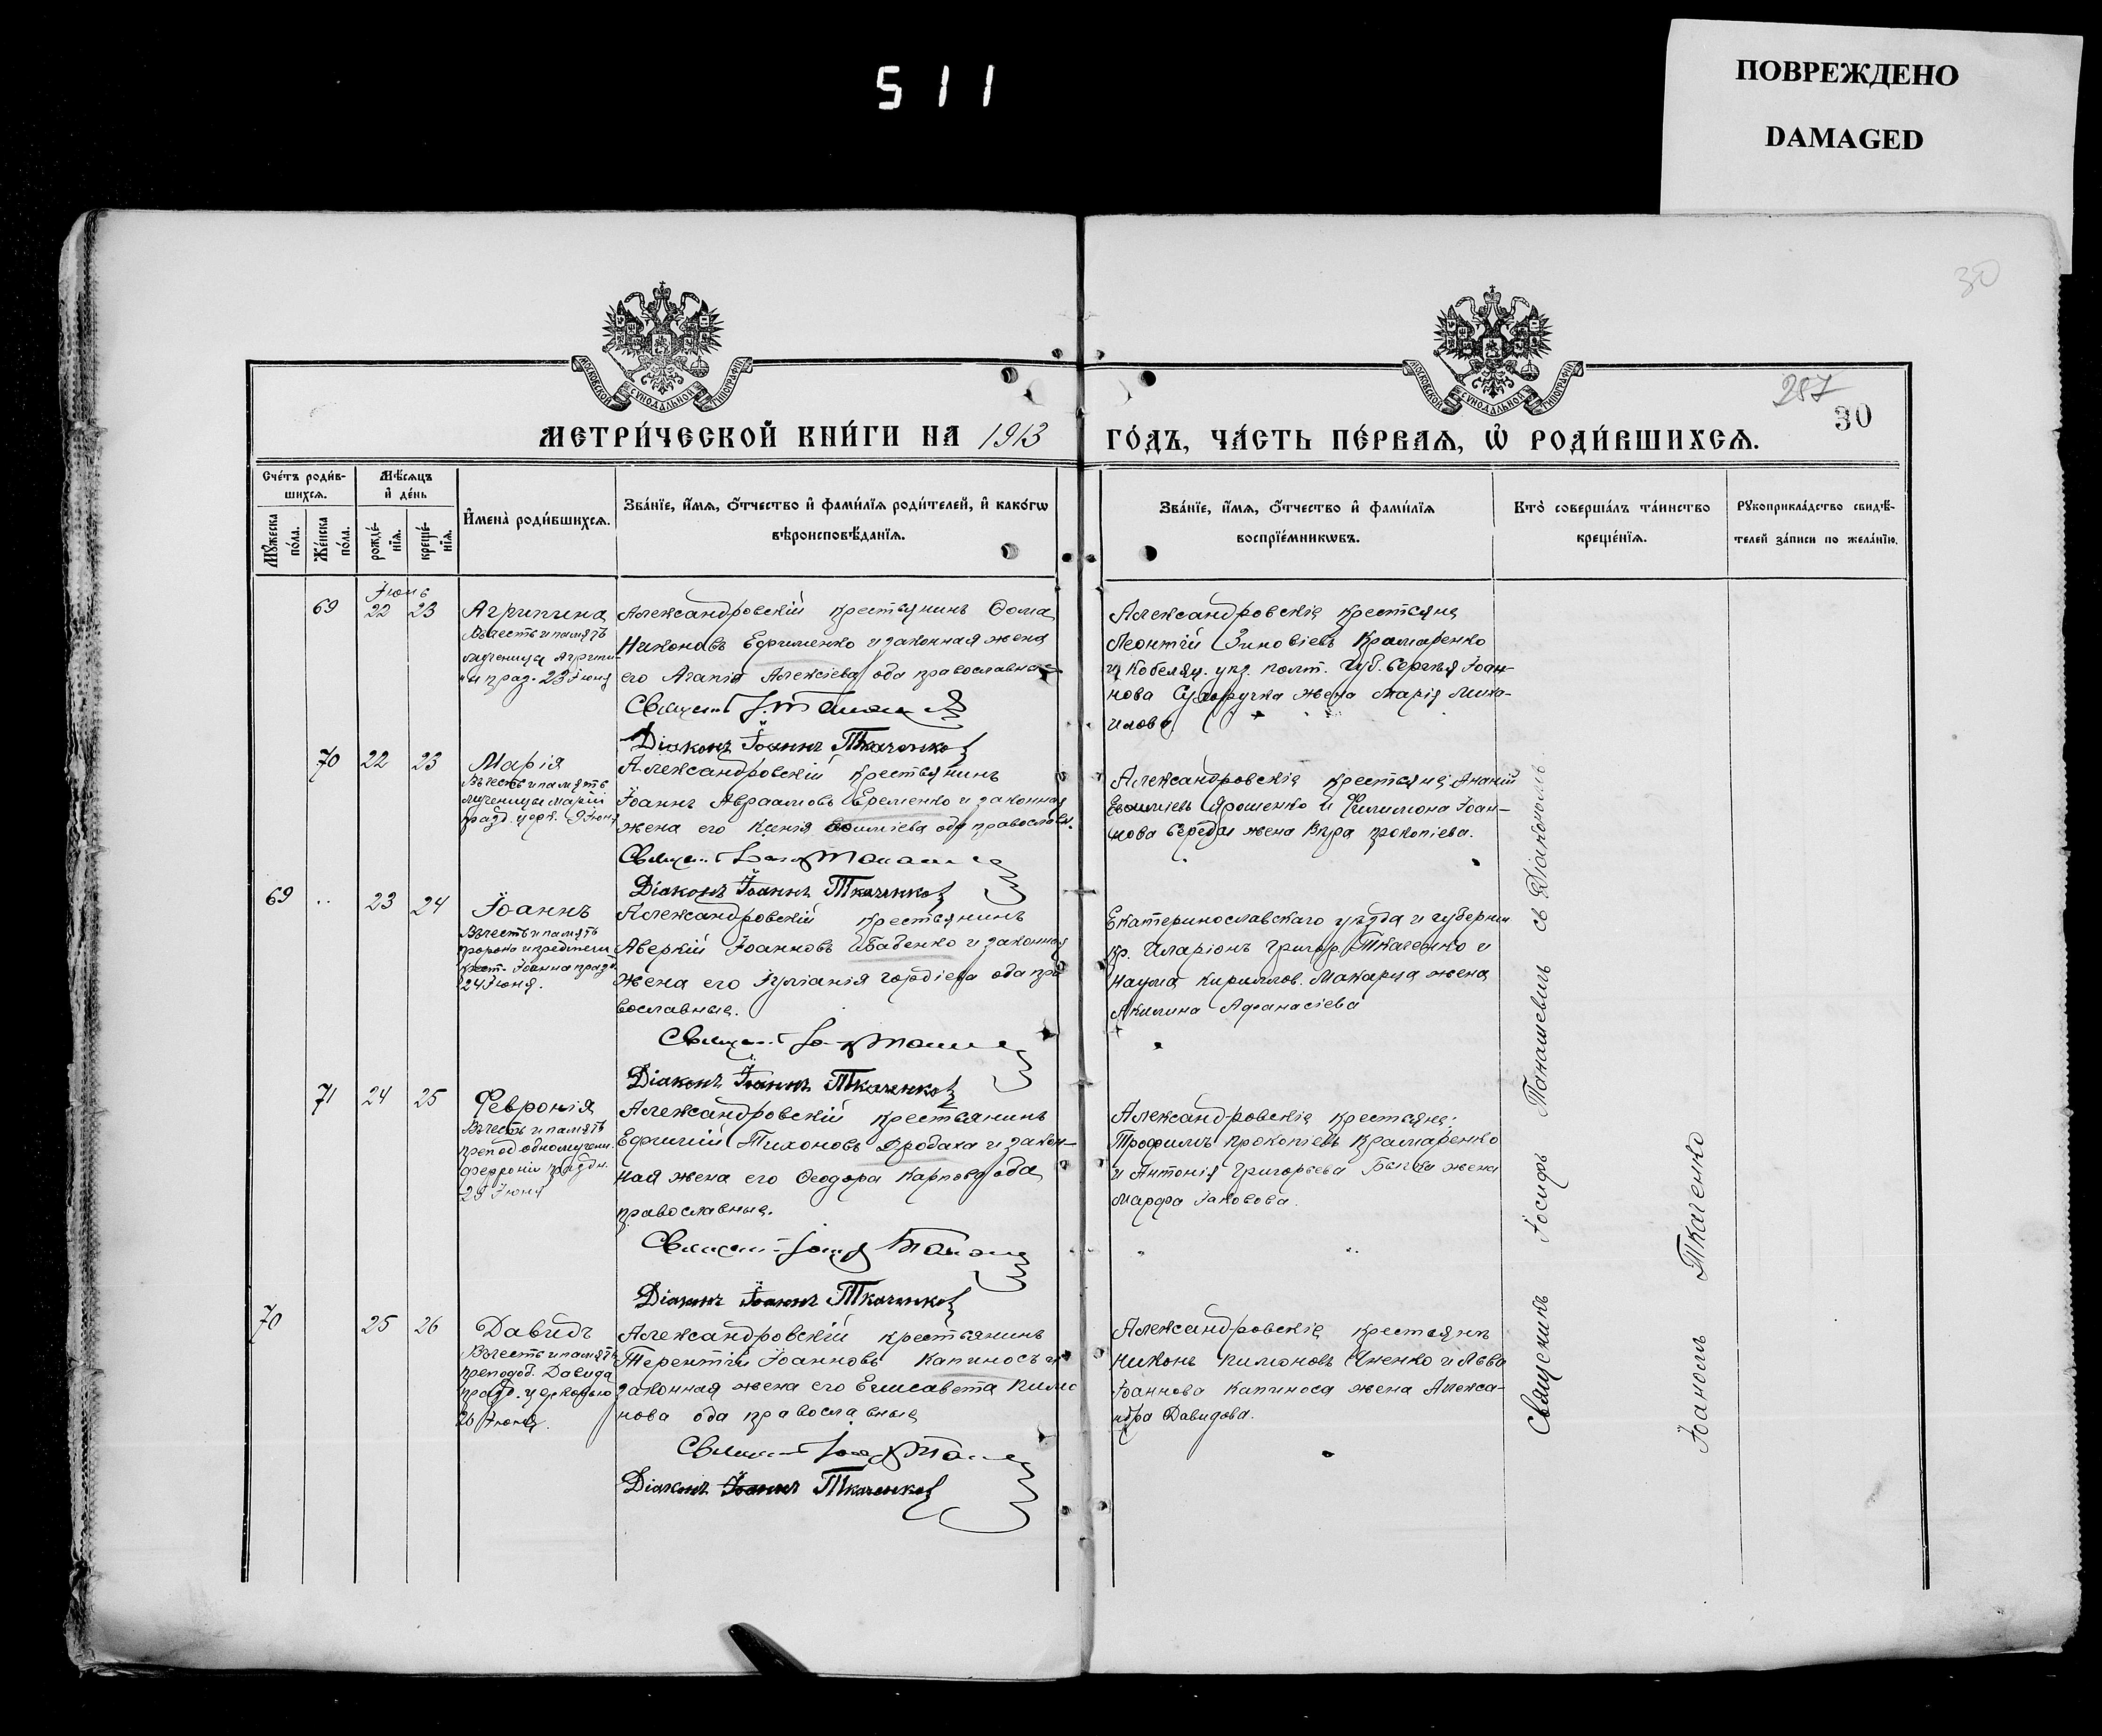 511
ПОВРЕЖДЕНО
DAMAGED
30
287
30
МОСКОВСКОЙ СѴНОДАЛЬНОЙ ТИПОГРАФІИ
МОСКОВСКОЙ СѴНОДАЛЬНОЙ ТИПОГРАФІИ
МЕТРИ́ЧЕСКОЙ КНИ́ГИ НА 1913 ГО́ДЪ, ЧА́СТЬ ПЕ́РВАѦ, Ѡ҆ РОДИ́ВШИХСѦ.
Сче́тъ роди́в-
шихсѧ.
Мѣ́сѧцъ
и҆ де́нь
Мꙋ́жеска по́ла.
Же́нска по́ла.
рожде́-
нїѧ.
креще́-
нїѧ.
И҆мена̀ роди́вшихсѧ.
Зва́нїе, и҆́мѧ, ѻ҆́тчество и҆ фами́лїѧ роди́телей, и҆ како́гѡ
вѣроисповѣ́данїѧ.
Зва́нїе, и҆́мѧ, ѻ҆́тчество и҆ фами́лїѧ
воспрїе́мникѡвъ.
Кто̀ соверша́лъ та́инство
креще́нїѧ.
Рꙋкоприкла́дство свидѣ́-
телей за́писи по жела́нїю.
Іюнь
69 22 23
Агрипина
Въ честь и память
мученицы Агрипи-
ны праз. 23 Іюня
Александровскій крестьянинъ Ѳома
Никоновъ Ефименко и законная жена
его Агапія Алексіева оба православные
Священ
Діаконъ Іоаннъ Ткаченко
Александровскіе крестьяне
Леонтій Зиновіевъ Крамаренко
и Кобеляк. уѣз. полт. губ. Сергѣя Іоан-
нова Сухоручка жена Марія Миха-
илова
70 22 23
Марія
Въ честь и память
мученицы Маріи
празд. церк. 9 Іюня
Александровскій крестьянинъ
Іоаннъ Авраамовъ Еременко и законная
жена его Ксенія оба православн.
Священ
Діаконъ Іоаннъ Ткаченко
Александровскіе крестьяне Ананій
Евѳиміевъ Ярошенко и Филимона Іоан-
нова Середы жена Вѣра Прокопіева.
69 23 24
Іоаннъ
Въ честь и память
пророка и предтечи
крест. Іоанна празд.
24 Іюня.
Александровскій крестьянинъ
Аверкій Іоанновъ Бабенко и законная
жена его Іуліанія Гордіева оба пра
вославные.
Священ
Діаконъ Іоаннъ Ткаченко
Екатеринославскаго уѣзда и губерніи
кр. Иларіонъ Григор. Ткаченко и
Наума Кириллов. Макарца жена
Акилина Афанасіева
71 24 25
Февронія
Въ честь и память
препод одномучени.
Ферроніи праздн.
25 Іюня
Александровскій крестьянинъ
Ефимій Тихоновъ Продаха и закон-
ная жена его Ѳеодора Карпова оба
православные.
Священ
Діаконъ Іоаннъ Ткаченко
Александровскіе крестьяне:
Трофимъ Прокопіевъ Крамаренко
и Антонія Григорьева жена
Марфа Іаковова.
70 25 26
Давидъ
Въ честь и память
преподоб. Давида
празд. церковью
26 Іюня.
Александровскій крестьянинъ
Терентій Іоанновъ Капиносъ и
законная жена его Елисавета Кимо
нова оба православные
Священ
Діаконъ Іоаннъ Ткаченко
Александровскіе крестьяне
Никонъ Кимоновъ и Льва
Іоаннова Капиноса жена Алекса-
ндра Давидова.
Священникъ Іосифъ Танашевичъ съ Діакономъ
Іоаномъ Ткаченко